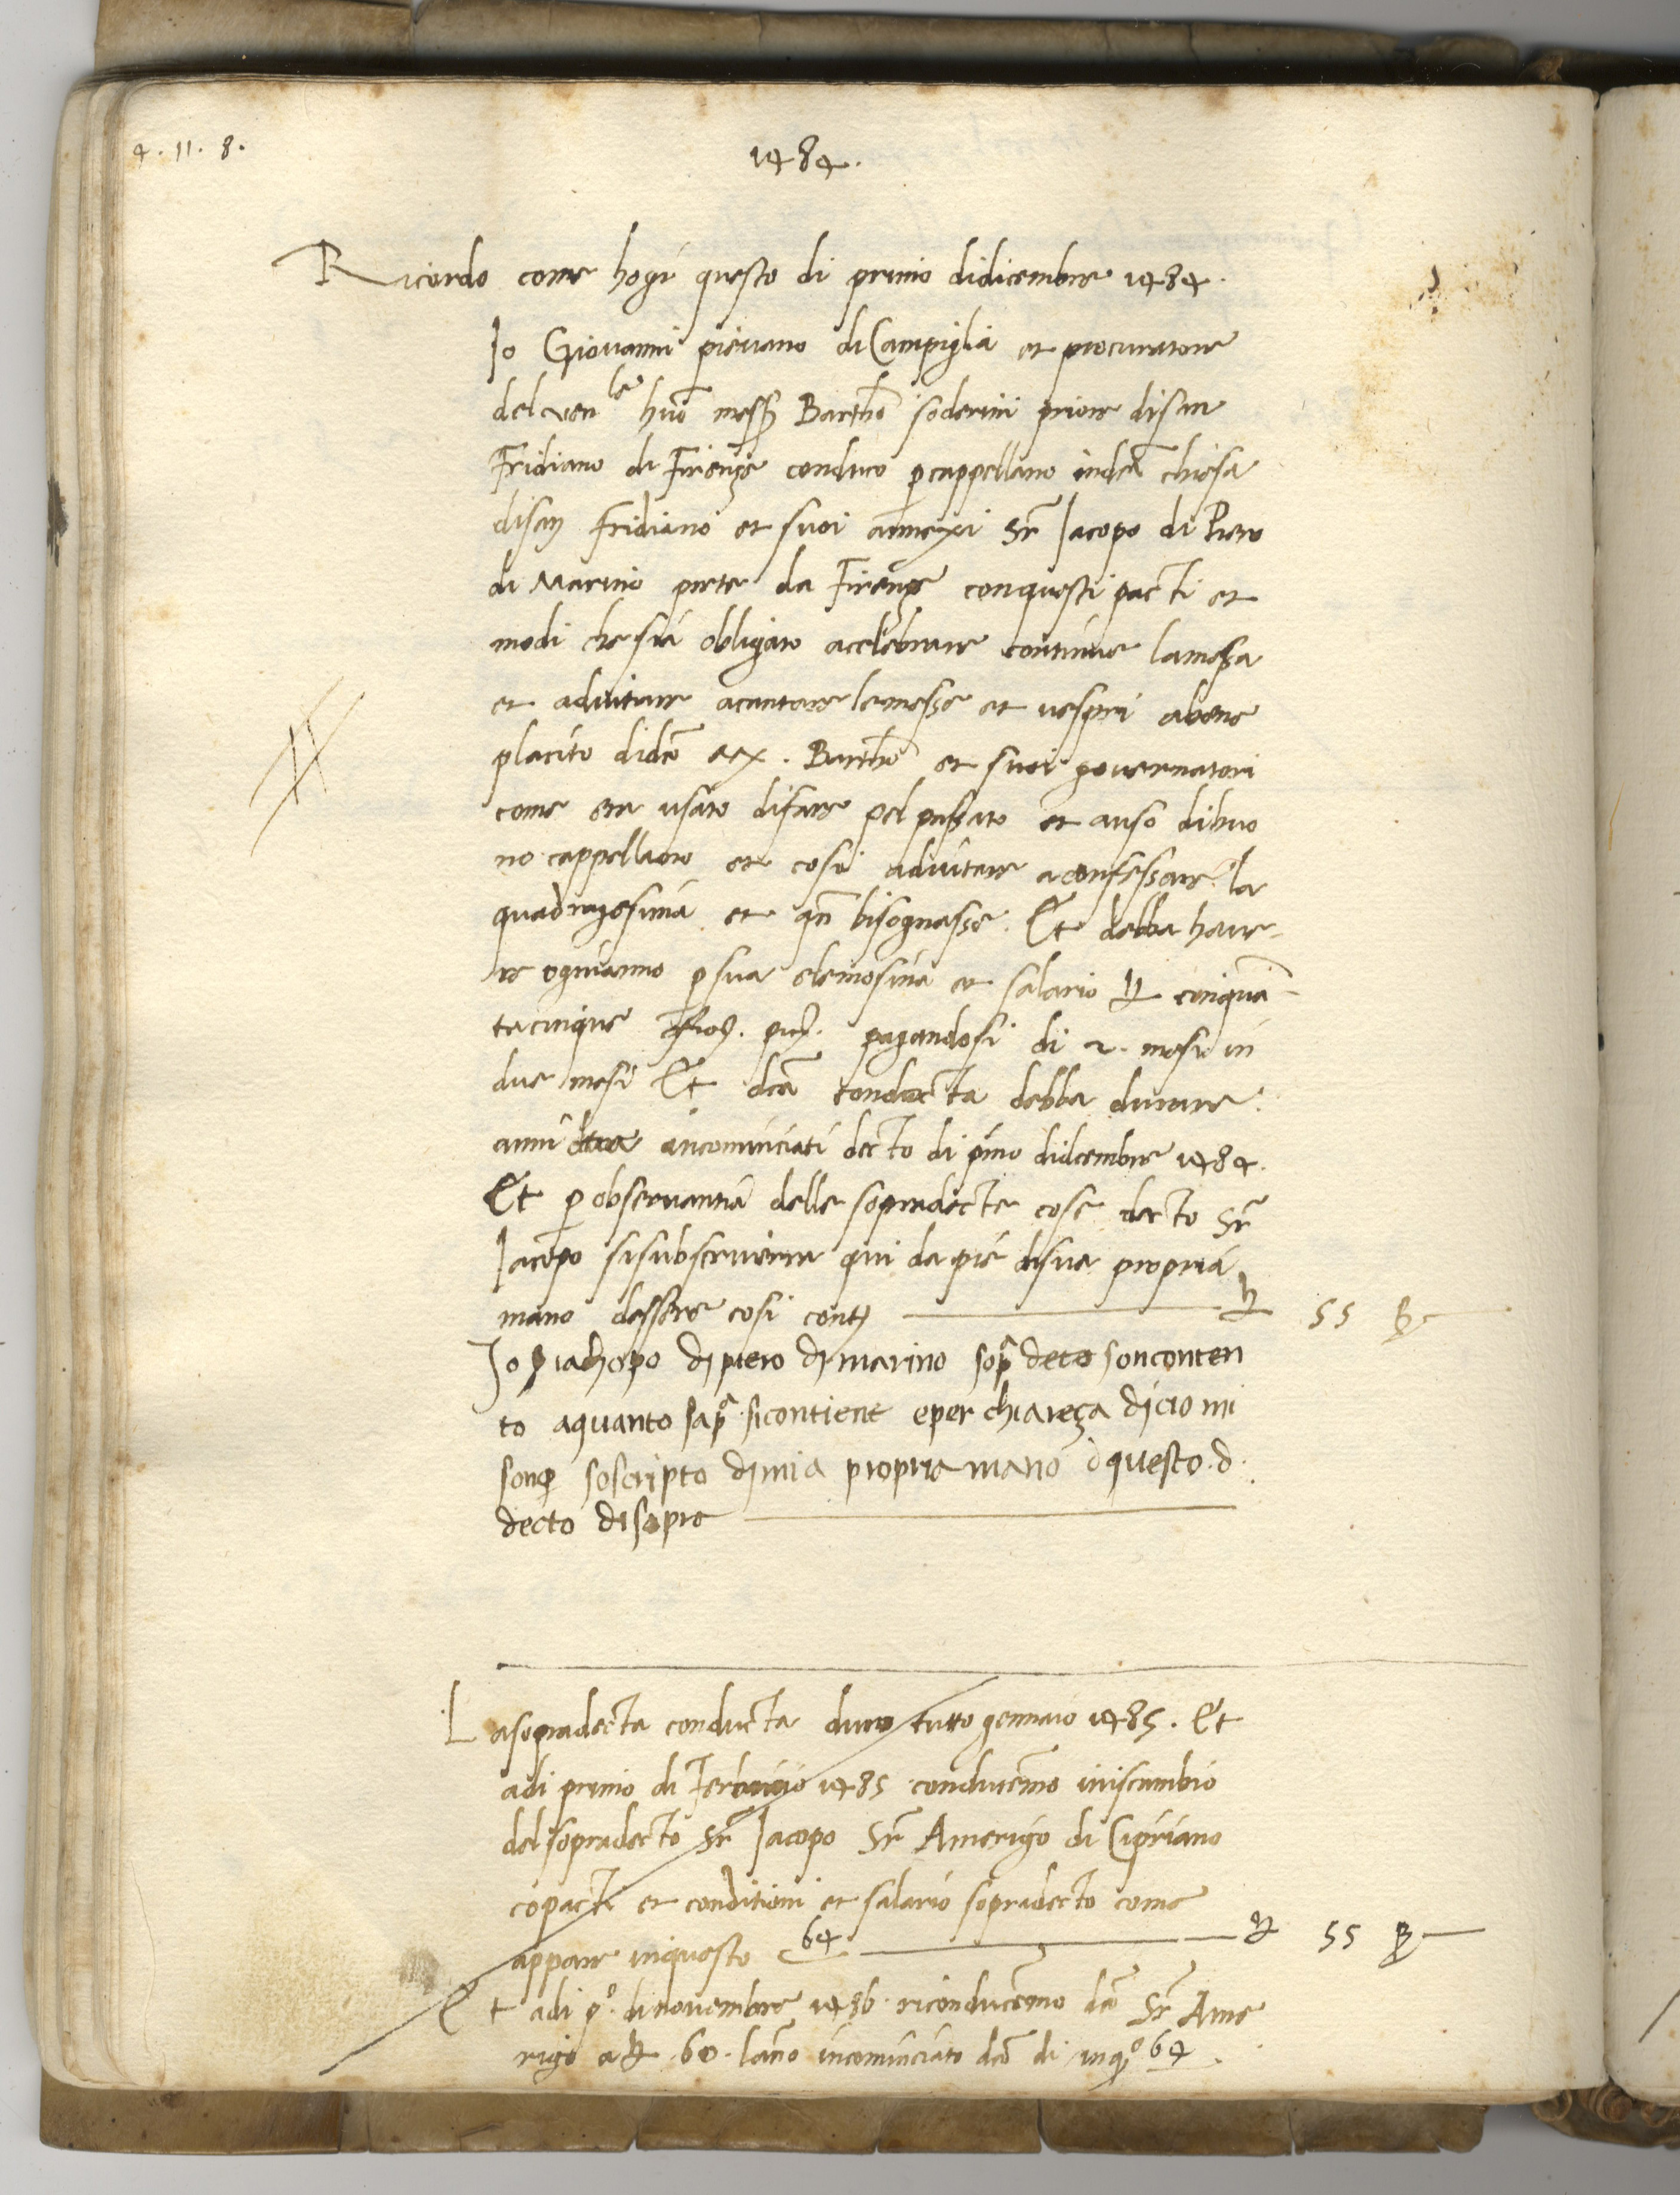 4. 11. 8.
1484.
Ricordo come hogi questo di primo didicembre 1484.
Io Giovanni piovano di Campiglia et procuratore
del ven le huō mess Barthō soderini priore disan
Fridiano di Firenze conduco p cappellano indcā chiesa
disan Fridiano et suoi annexi Sr Jacopo di Piero
di Marino prete da Firenze conquesti pacti et
modi che sia obligato acelebrare continue lamessa
et adiutare acantare lemesse et vespri abene
placito didcō Barthō et suoi governatori
come era usato difare pel passato et a uso dibuo
no cappellano et cosi adiutare aconfessare la
quadragesima et qn bisognasse. Et debba have-
re ogni anno p sua elemosina et salario L cinquā
tacinque pagandosi di 2. mesi in
due mesi Et dcā conducta debba durare
anni incominciati decto di pimo didcembre 1484.
Et p observantia delle sopradecte cose decto Sr
Jacopo sisubscriverra qui da pie disua propria
mano dessere cosi cont L 55 β —
Io Jiachopo di piero di marino sopa deto sonconten
to aquanto sapa sicontiene eper chiareza dicio mi
sono soscripto dimia propria mano questo d
decto disopra
Lasopradecta conducta duro tutto gennaio 1485. Et
adi primo di Febraio 1485 conducemo iniscambio
delsopradecto Sr Jacopo Sr Amerigo di Cipriano
cōpacti et conditioni et salario sopradecto come
appare inquesto 64 L 55 β —
Et adi po. dinovembre 1486 riconducemo dcō Sr Ame
rigo a L .60. lanno incominciato dcō di inqo 64.